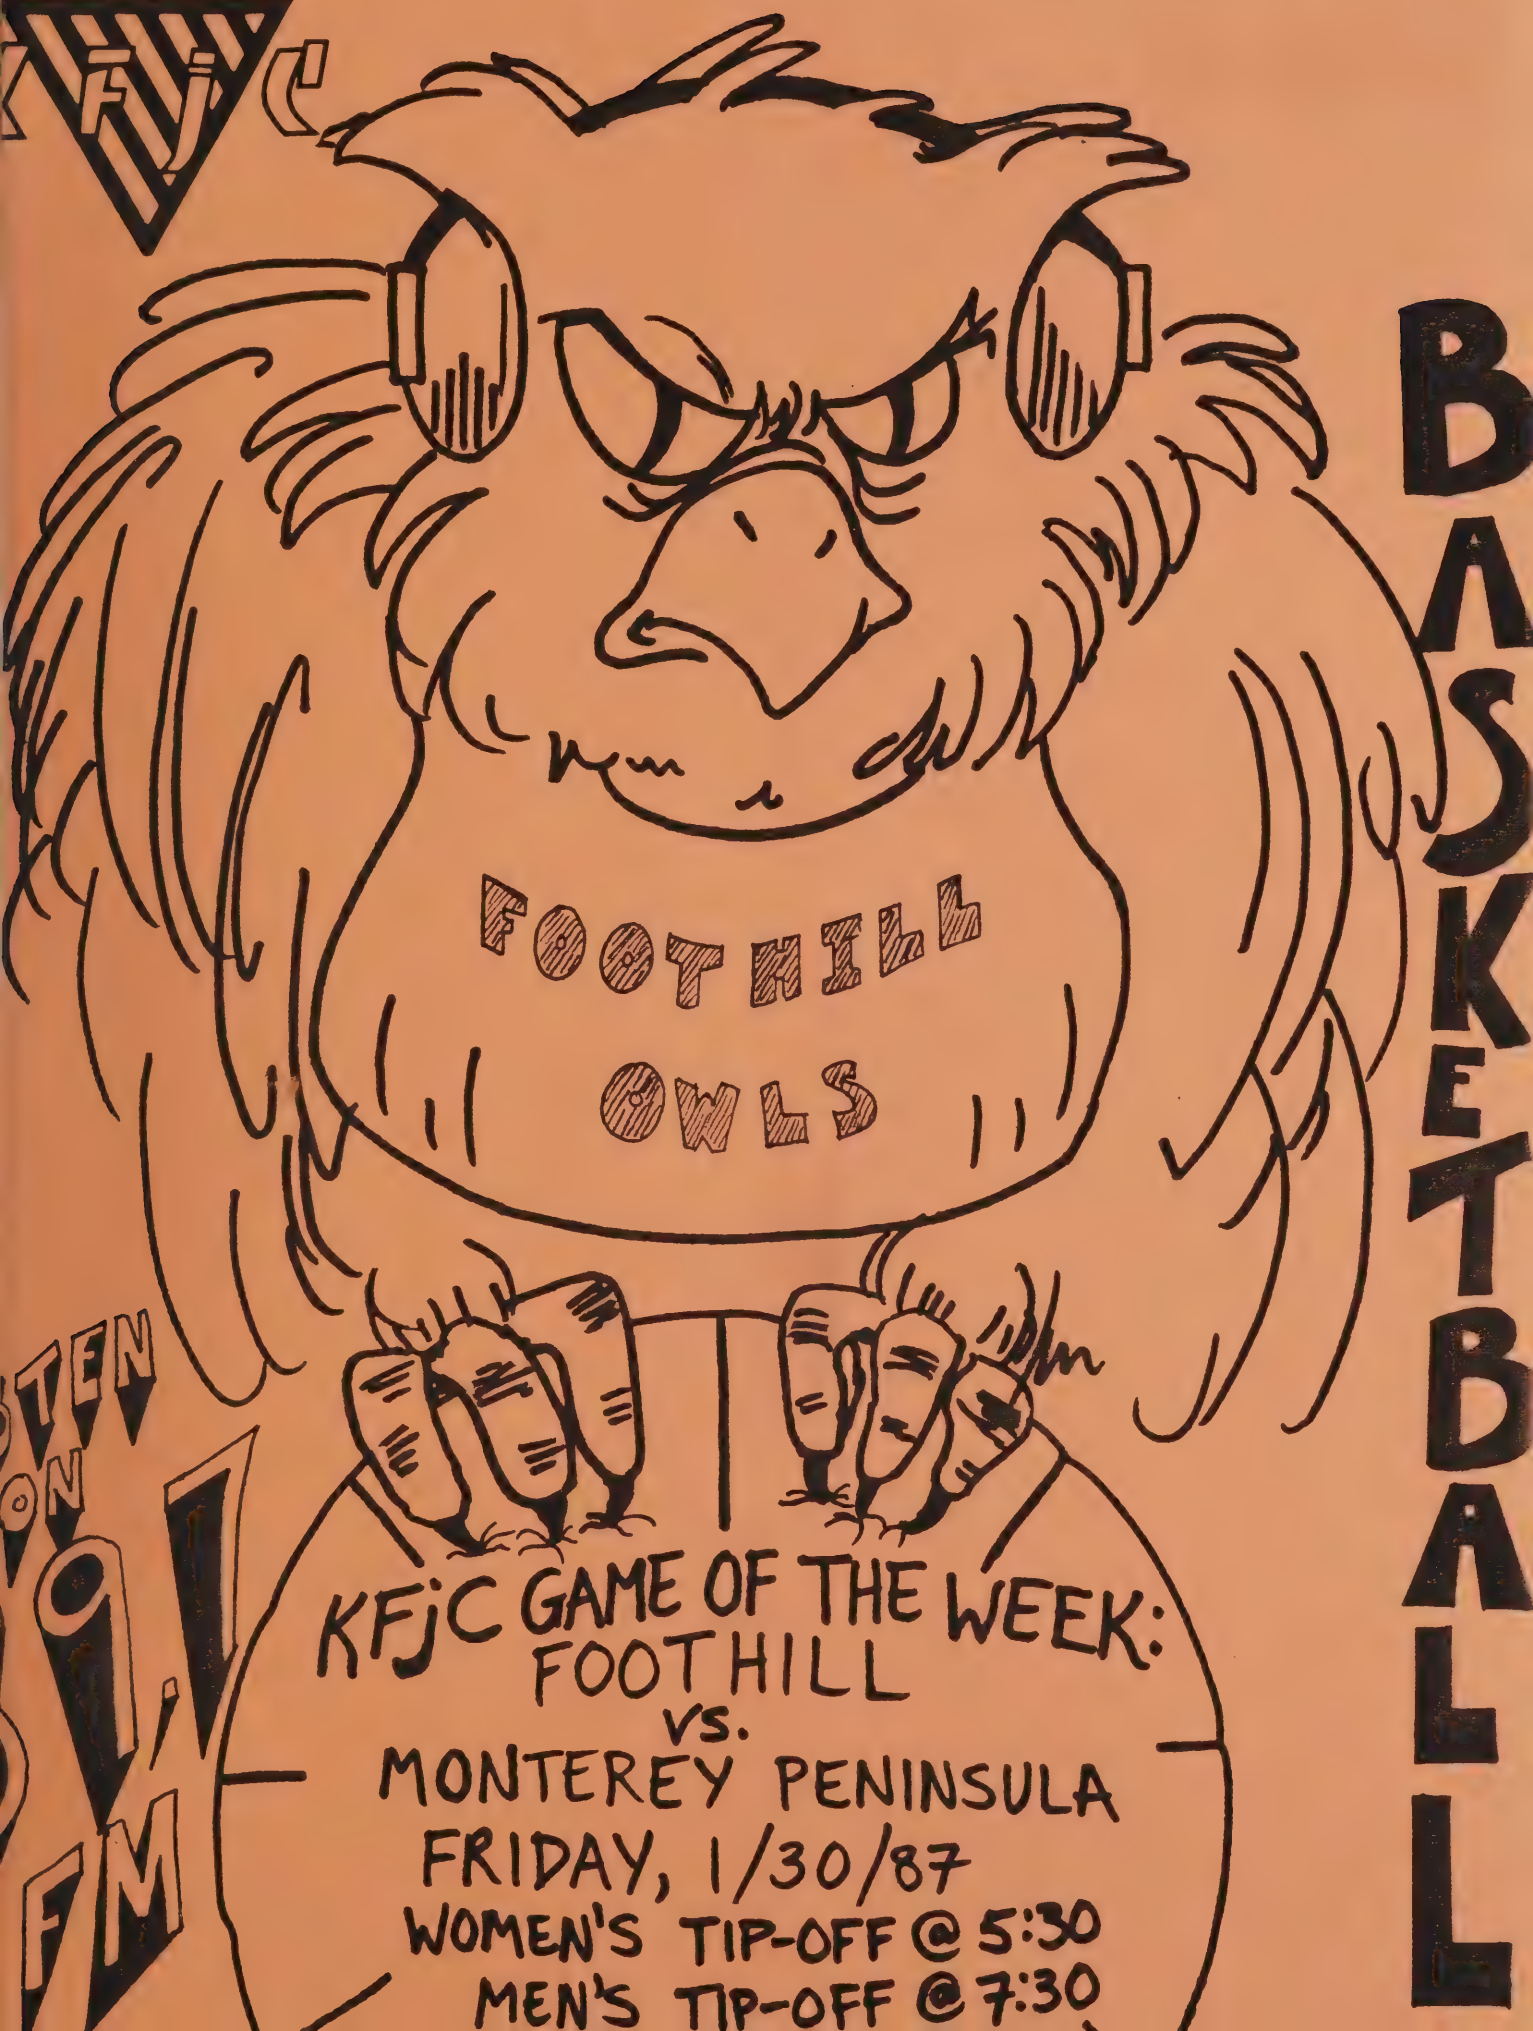 KFjC
BASKETBALL
FOOTHILL
OWLS
TEN
ON
9.7
FM
KFjC GAME OF THE WEEK:
FOOTHILL
VS.
MONTEREY PENINSULA
FRIDAY, 1/30/87
WOMEN'S TIP-OFF @ 5:30
MEN'S TIP-OFF @ 7:30